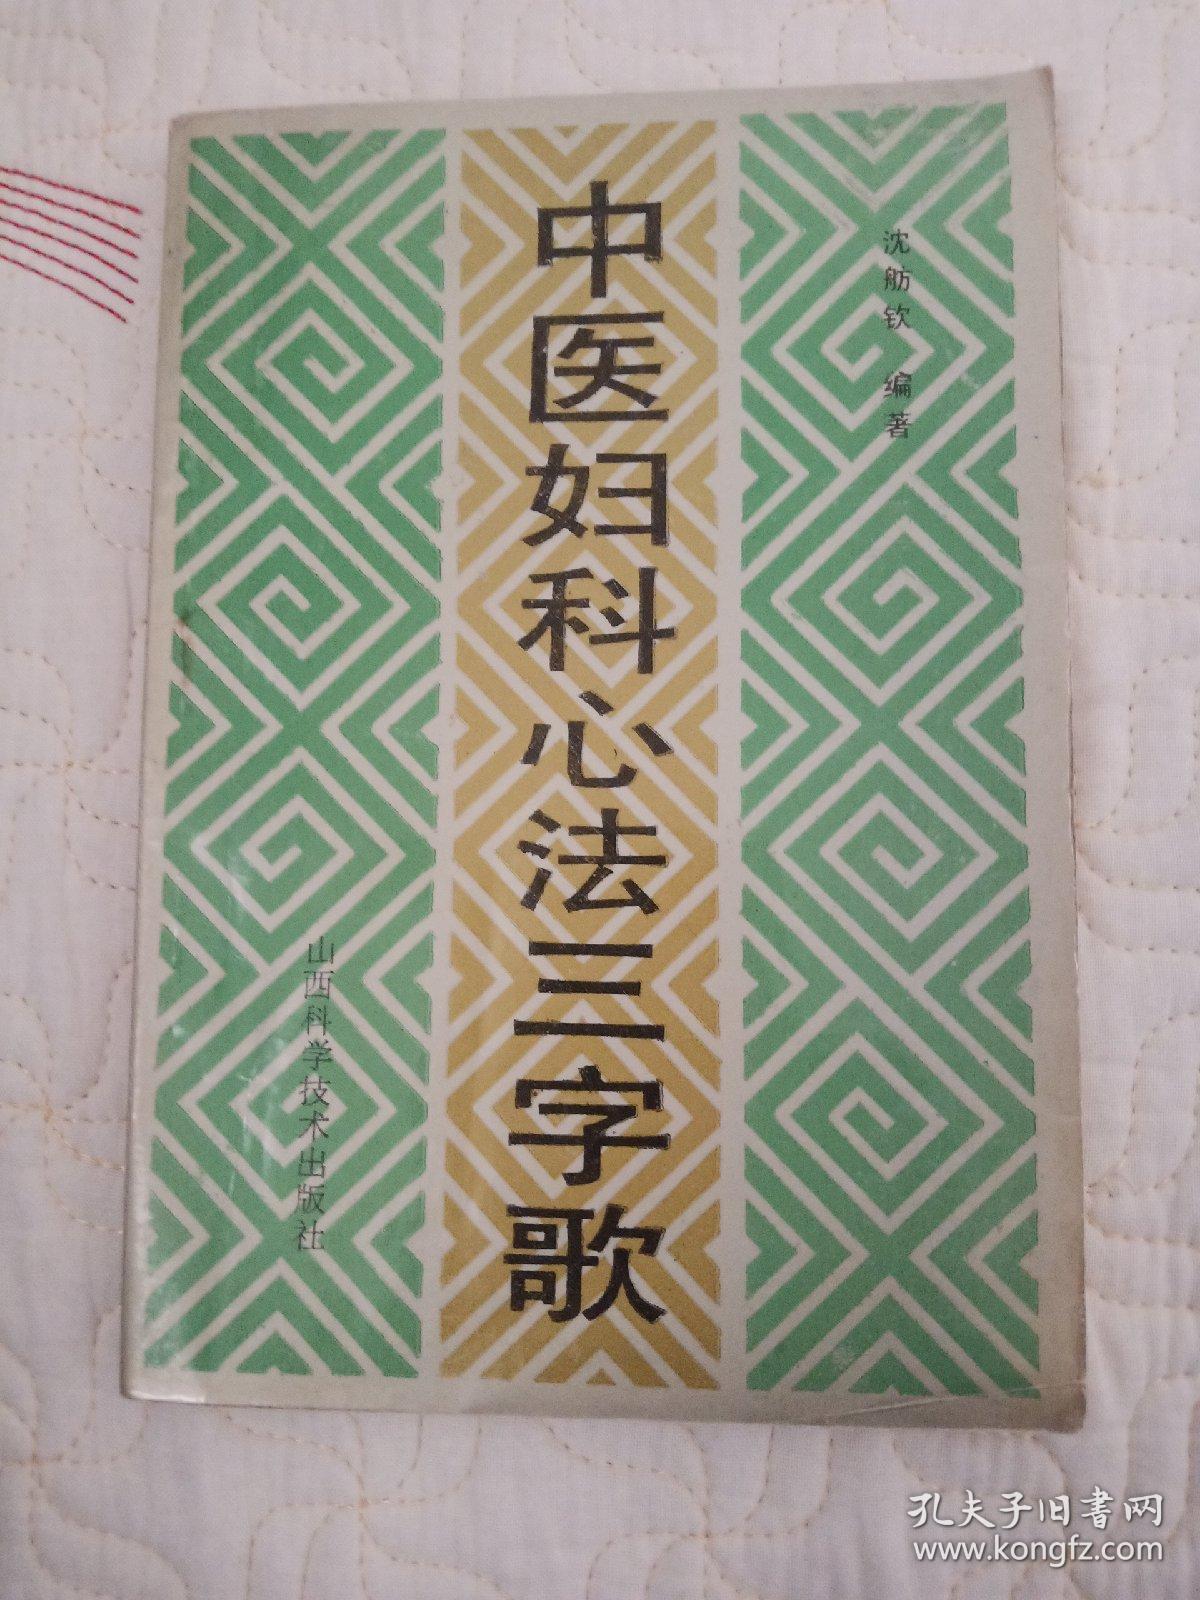 沈舫钦 编著
中医妇科心法三字歌
山西科学技术出版社
孔夫子旧书网
www.kongfz.com